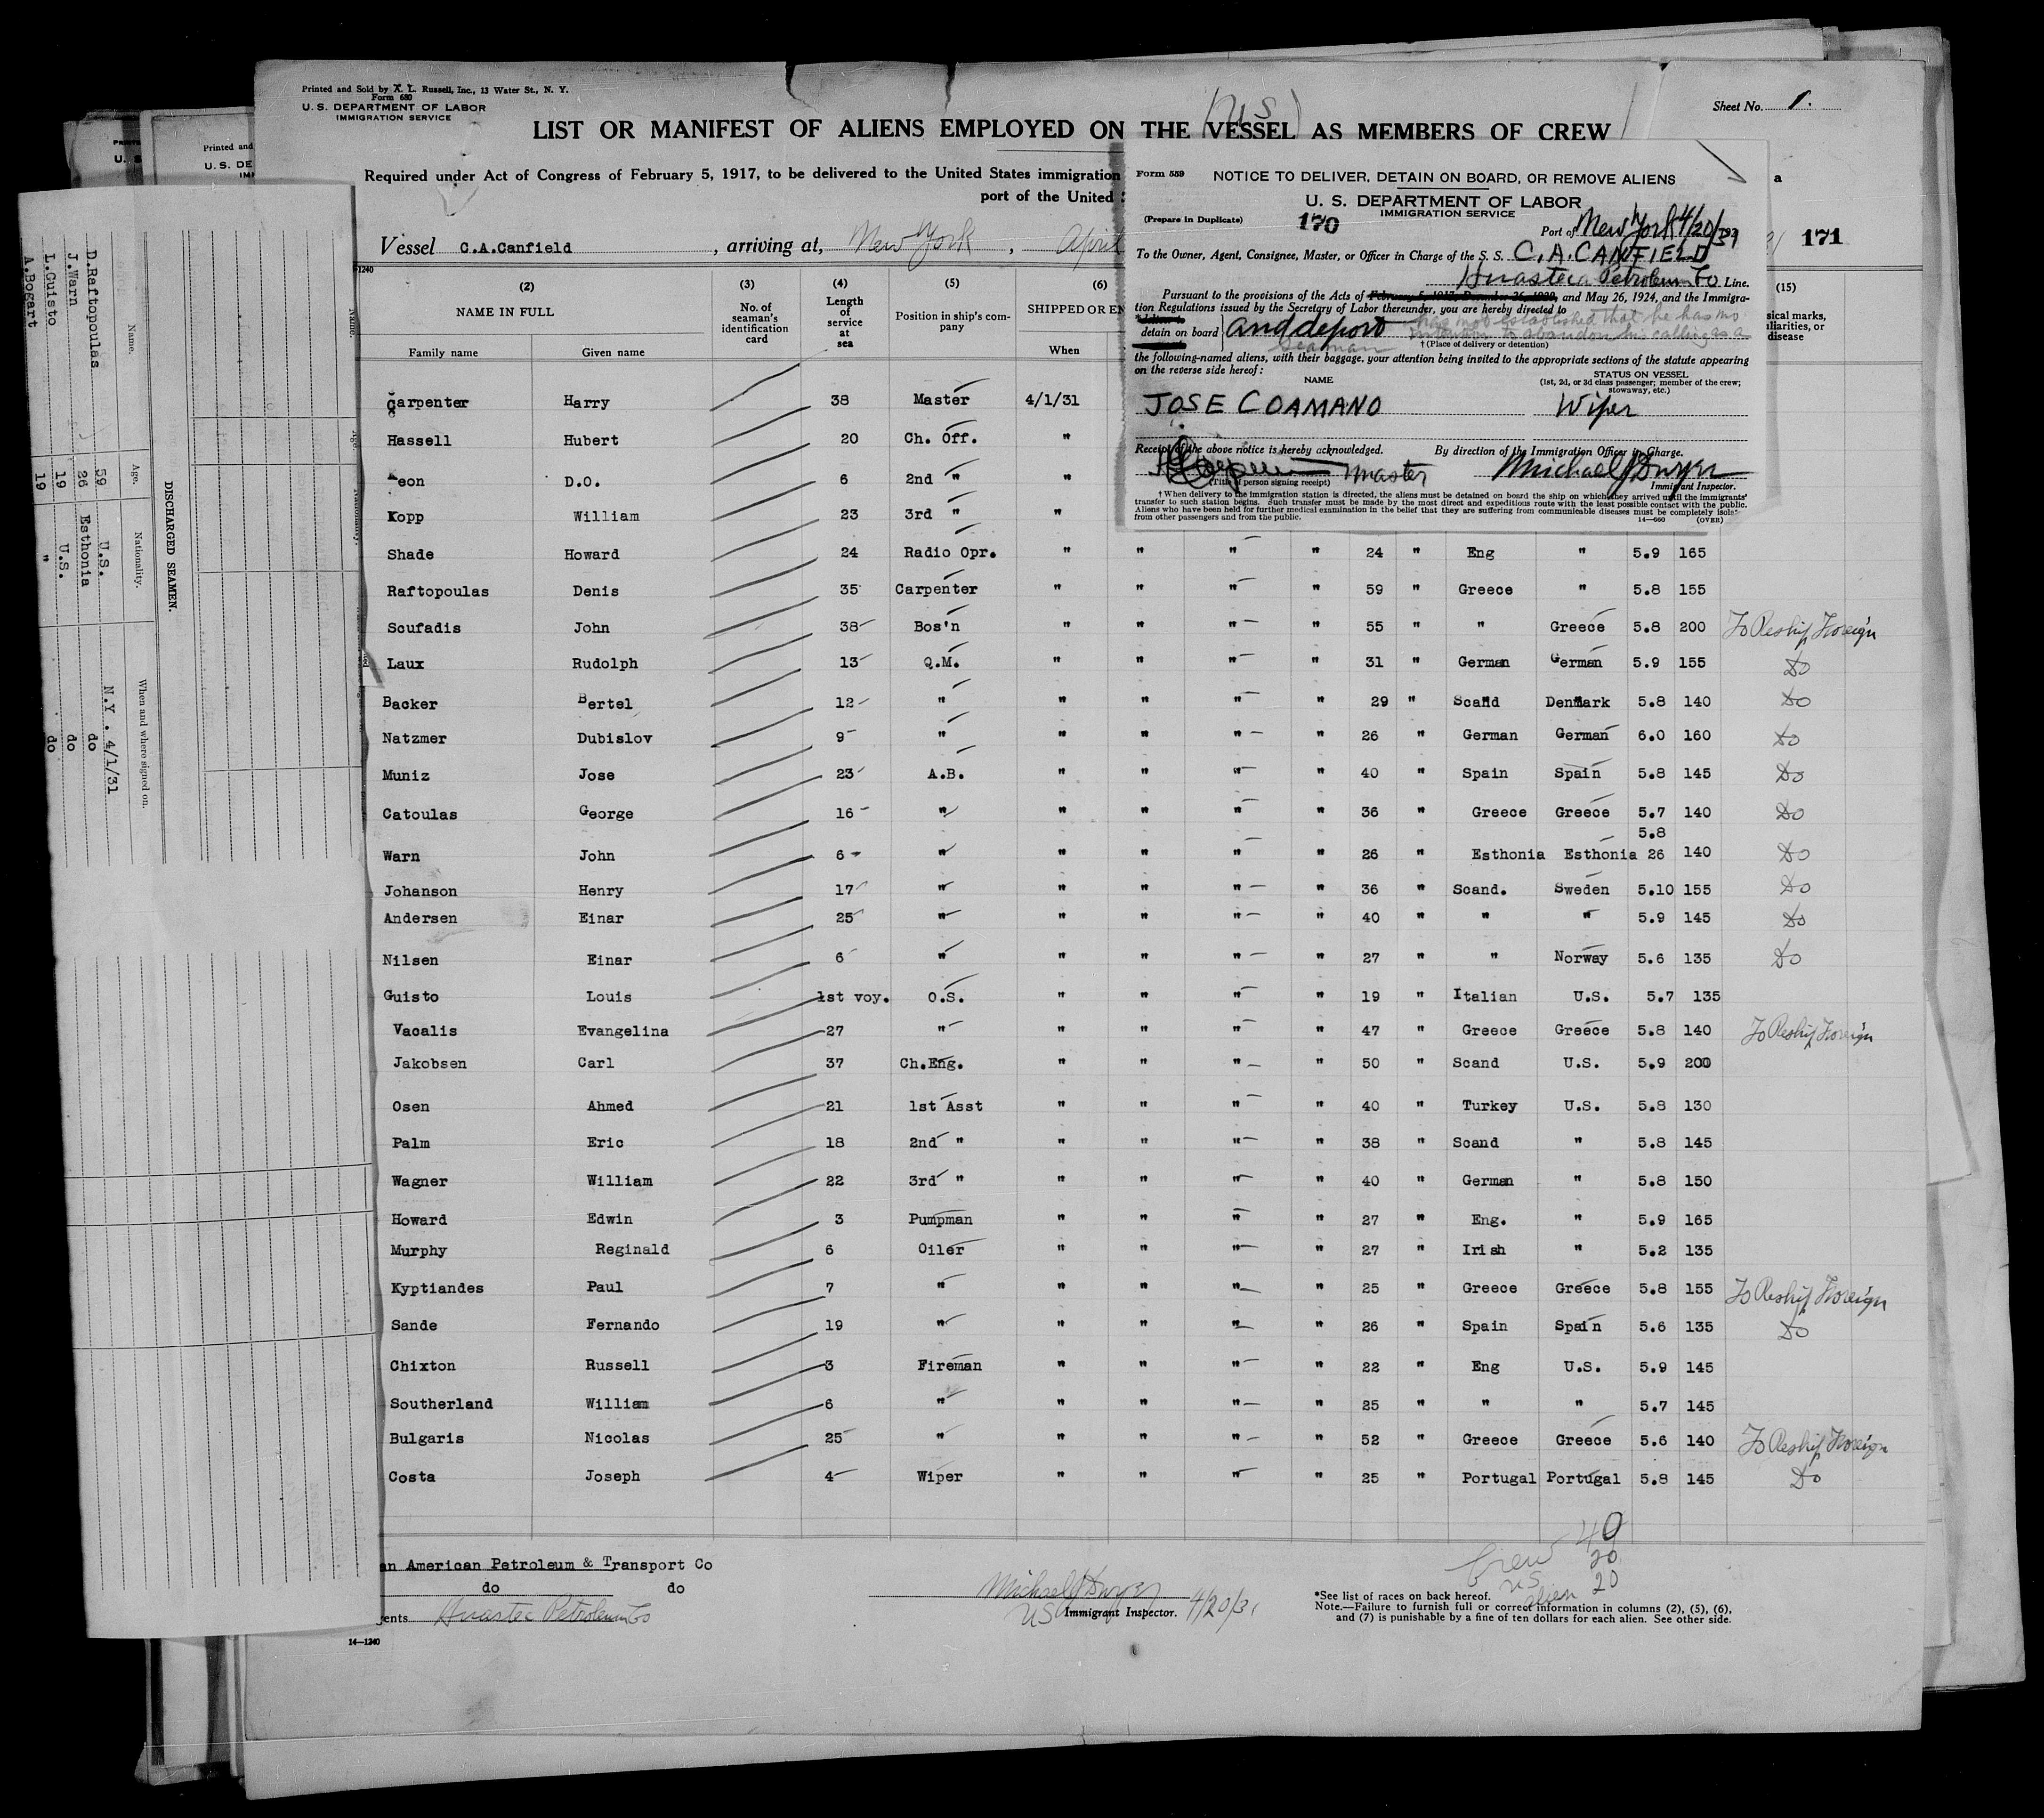 Printed and Sold by A. L. Russell, Inc., 13 Water St., N. Y.
Form 680
U. S. DEPARTMENT OF LABOR
IMMIGRATION SERVICE
(U S)
Sheet No. 1.
LIST OR MANIFEST OF ALIENS EMPLOYED ON THE VESSEL AS MEMBERS OF CREW
Required under Act of Congress of February 5, 1917, to be delivered to the United States immigration
port of the United
Vessel C.A.Canfield, arriving at, New York, April
171
Form 559 NOTICE TO DELIVER, DETAIN ON BOARD, OR REMOVE ALIENS
U. S. DEPARTMENT OF LABOR
IMMIGRATION SERVICE
(Prepare in Duplicate) 170
Port of New York 4/20/31
To the Owner, Agent, Consignee, Master, or Officer in Charge of the S. S. C. A. CANFIELD
Huasteca Petroleum Co Line.
Pursuant to the provisions of the Acts of February 5, 1917, December 26, 1920, and May 26, 1924, and the Immigra-
tion Regulations issued by the Secretary of Labor thereunder, you are hereby directed to
detain on board and deport has not established that he has no
intention to abandon his calling as a
seaman
† (Place of delivery or detention)
the following-named aliens, with their baggage, your attention being invited to the appropriate sections of the statute appearing
on the reverse side hereof:
NAME
STATUS ON VESSEL
(1st, 2d, or 3d class passenger; member of the crew;
stowaway, etc.)
JOSE COAMANO Wiper
Receipt of the above notice is hereby acknowledged. By direction of the Immigration Officer in Charge.
Master Michael J Dwyer
(Title of person signing receipt) Immigrant Inspector.
† When delivery to the immigration station is directed, the aliens must be detained on board the ship on which they arrived until the immigrants'
transfer to such station begins. Such transfer must be made by the most direct and expeditious route with the least possible contact with the public.
Aliens who have been held for further medical examination in the belief that they are suffering from communicable diseases must be completely isola-
from other passengers and from the public.
14—660 (OVER)
(2) (3) (4) (5) (6) (15)
NAME IN FULL
No. of seaman's identification card
Length of service at sea
Position in ship's com-pany
SHIPPED OR EN
sical marks,
uliarities, or
disease
Family name Given name When
Carpenter Harry 38 Master 4/1/31
Hassell Hubert 20 Ch. Off. "
Keon D.O. 6 2nd " "
Kopp William 23 3rd " "
Shade Howard 24 Radio Opr. " " " " 24 " Eng " 5.9 165
Raftopoulas Denis 35 Carpenter " " " " 59 " Greece " 5.8 155
Scufadis John 38 Bos'n " " " " 55 " " Greece 5.8 200 To Reship Foreign
Laux Rudolph 13 Q.M. " " " " 31 " German German 5.9 155 Do
Backer Bertel 12 " " " " " 29 " Scand Denmark 5.8 140 Do
Natzmer Dubislov 9 " " " " " 26 " German German 6.0 160 Do
Muniz Jose 23 A.B. " " " " 40 " Spain Spain 5.8 145 Do
Catoulas George 16 " " " " " 36 " Greece Greece 5.7 140 Do
5.8
Warn John 6 " " " " " 26 " Esthonia Esthonia 26 140 Do
Johanson Henry 17 " " " " " 36 " Scand. Sweden 5.10 155 Do
Andersen Einar 25 " " " " " 40 " " " 5.9 145 Do
Nilsen Einar 6 " " " " " 27 " " Norway 5.6 135 Do
Guisto Louis 1st voy. O.S. " " " " 19 " Italian U.S. 5.7 135
Vacalis Evangelina 27 " " " " " 47 " Greece Greece 5.8 140 To Reship Foreign
Jakobsen Carl 37 Ch.Eng. " " " " 50 " Scand U.S. 5.9 200
Osen Ahmed 21 1st Asst " " " " 40 " Turkey U.S. 5.8 130
Palm Eric 18 2nd " " " " " 38 " Scand " 5.8 145
Wagner William 22 3rd " " " " " 40 " German " 5.8 150
Howard Edwin 3 Pumpman " " " " 27 " Eng. " 5.9 165
Murphy Reginald 6 Oiler " " " " 27 " Irish " 5.2 135
Kyptiandes Paul 7 " " " " " 25 " Greece Greece 5.8 155 To Reship Foreign
Sande Fernando 19 " " " " " 26 " Spain Spain 5.6 135 Do
Chixton Russell 3 Fireman " " " " 22 " Eng U.S. 5.9 145
Southerland William 6 " " " " " 25 " " " 5.7 145
Bulgaris Nicolas 25 " " " " " 52 " Greece Greece 5.6 140 To Reship Foreign
Costa Joseph 4 Wiper " " " " 25 " Portugal Portugal 5.8 145 Do
Crew 40
US 20
alien 20
an American Petroleum & Transport Co
do do
ents Huasteca Petroleum Co
Michael J Dwyer
US Immigrant Inspector. 4/20/31
*See list of races on back hereof.
Note.—Failure to furnish full or correct information in columns (2), (5), (6),
and (7) is punishable by a fine of ten dollars for each alien. See other side.
14—1240
DISCHARGED SEAMEN.
Name. Age. Nationality. When and where signed on.
D.Raftopoulas 59 U.S. N.Y. 4/1/31
J.Warn 26 Esthonia do
L.Guisto 19 U.S. do
A.Bogart 19 " do
Printed and
U. S. DE